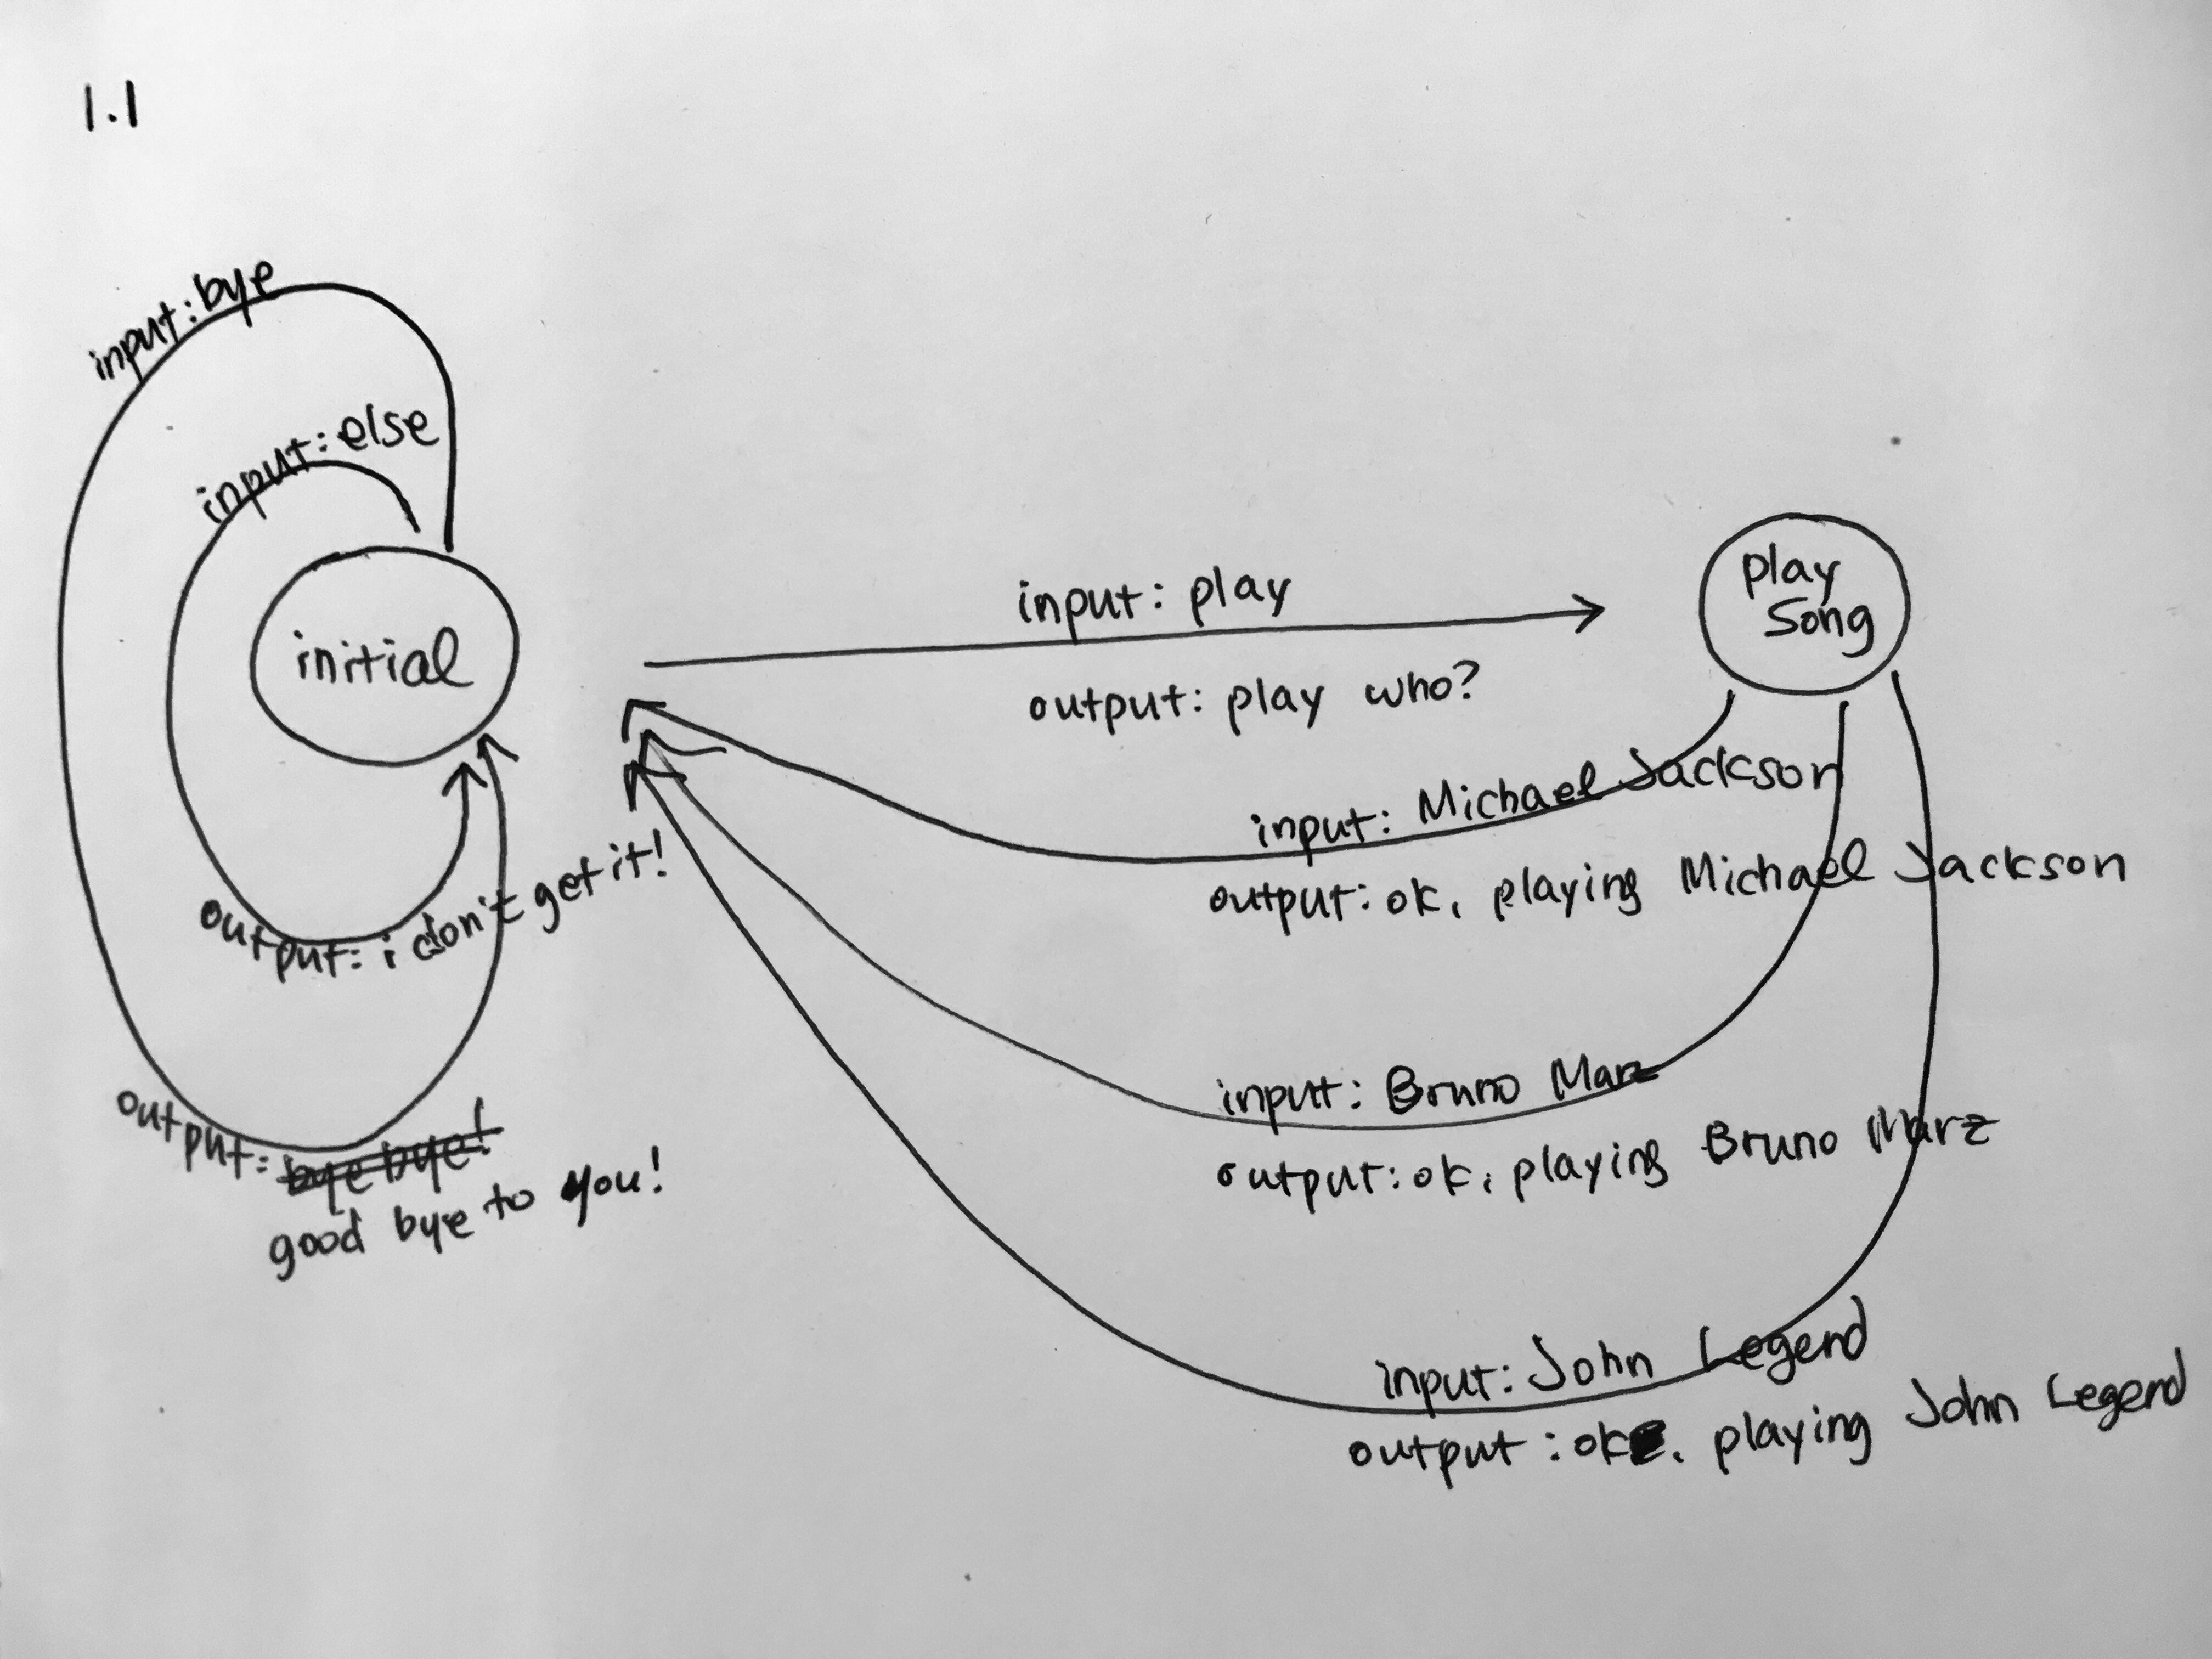 1.1
input: bye
input: else
initial
output: i don't get it!
output: bye bye!
good bye to you!
input: play
output: play who?
play
Song
input: Michael Jackson
output: ok, playing Michael Jackson
input: Bruno Marz
output: ok, playing Bruno Marz
input: John Legend
output: ok. playing John Legend